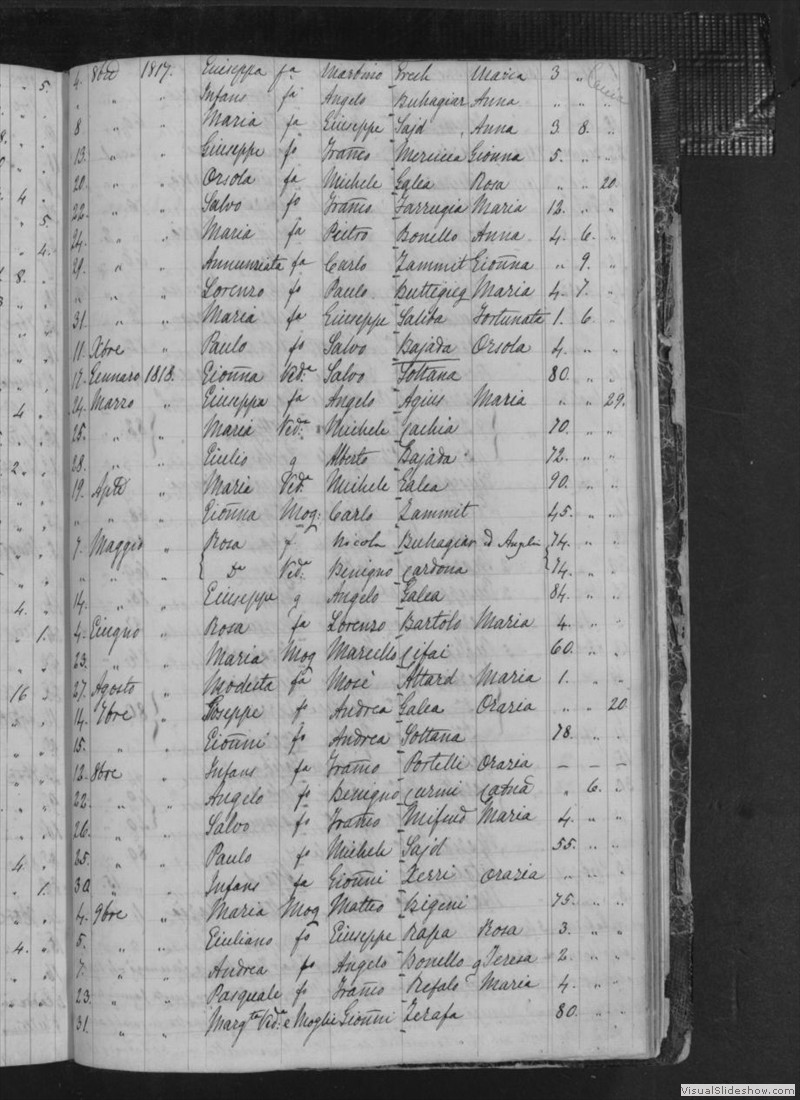 4. 8bre 1817. Giuseppa fa Martino Grech Maria 3 „
„ „ „ Infans fa Angelo Buhagiar Anna „ „ „
8 „ „ Maria fa Giuseppe Sajd Anna 3. 8. „
13. „ „ Giuseppe fo Franco Mercieca Gionna 5. „ „
20. „ „ Orsola fa Michele Galea Rosa „ „ 20.
22. „ „ Salvo fo Franco Farrugia Maria 12. „ „
24. „ „ Maria fa Pietro Bonello Anna 4. 6. „
29. „ „ Annunziata fa Carlo Zammit Gionna „ 9. „
„ „ „ Lorenzo fo Paulo Buttigieg Maria 4. 7. „
31. „ „ Maria fa Giuseppe Saliba Fortunata 1. 6 „
11. Xbre „ Paulo fo Salvo Bajada Orsola 4. „ „
17. Gennaro 1818. Gionna Ved.a Salvo Soltana 80. „ „
24. Marzo „ Giuseppa fa Angelo Agius Maria „ „ 29.
25. „ „ Maria Ved.a Michele Cachia 70. „ „
28. „ „ Giulio q Alberto Bajada 72. „ „
19. Aple „ Maria Ved.a Michele Galea 90. „ „
„ „ „ Gionna Mog: Carlo Zammit 45. „ „
7. Maggio „ Rosa f Nicola Buhagiar 74. „ „
„ „ „ Da Ved.a Benigno Cardona 74. „ „
14. „ „ Giuseppa q Angelo Galea 84. „ „
4. Giugno „ Rosa fa Lorenzo Bartolo Maria 4. „ „
23. „ „ Maria Mog Marcello Cifai 60. „ „
27. Agosto „ Modesta fa Mosè Attard Maria 1. „ „
14. 7bre „ Gioseppe fo Andrea Galea Orazia „ „ 20
15. „ „ Gionni fo Andrea Soltana 78. „ „
12. 8bre „ Infans fa Franco Portelli Orazia — — —
22. „ „ Angelo fo Benigno Curmi Catna „ 6. „
26. „ „ Salvo fo Franco Mifsud Maria 4. „ „
25. „ „ Paulo fo Michele Sajd 55. „ „
30. „ „ Infans fa Gionni Xerri Orazia „ „ „
4. 9bre „ Maria Mog Matteo Bigeni 75. „ „
5. „ „ Giuliano fo Giuseppe Rapa Rosa 3. „ „
7. „ „ Andrea fo Angelo Bonello q Teresa 2. „ „
23. „ „ Pasquale fo Franco Refalo Maria 4. „ „
31. „ „ Margta Ved.a e Moglie Gionni Zerafa 80. „ „
VisualSlideshow.com